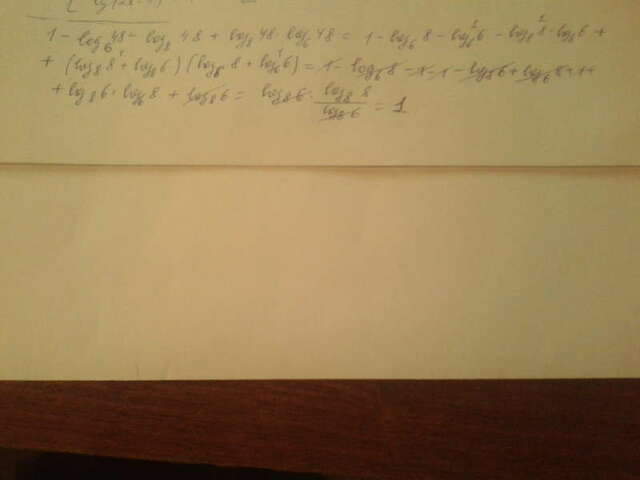 1 - log₆ 48 - log₈ 48 + log₈ 48 · log₆ 48 = 1 - log₆ 8 - log₆ 6 - log₈ 8 - log₈ 6 +
+ (log₈ 8 + log₈ 6) (log₆ 8 + log₆ 6) = 1 - log₆ 8 - 1 - 1 - log₈ 6 + log₆ 8 + 1 +
+ log₈ 6 · log₆ 8 + log₈ 6 = log₈ 6 · log₈ 8 / log₈ 6 = 1